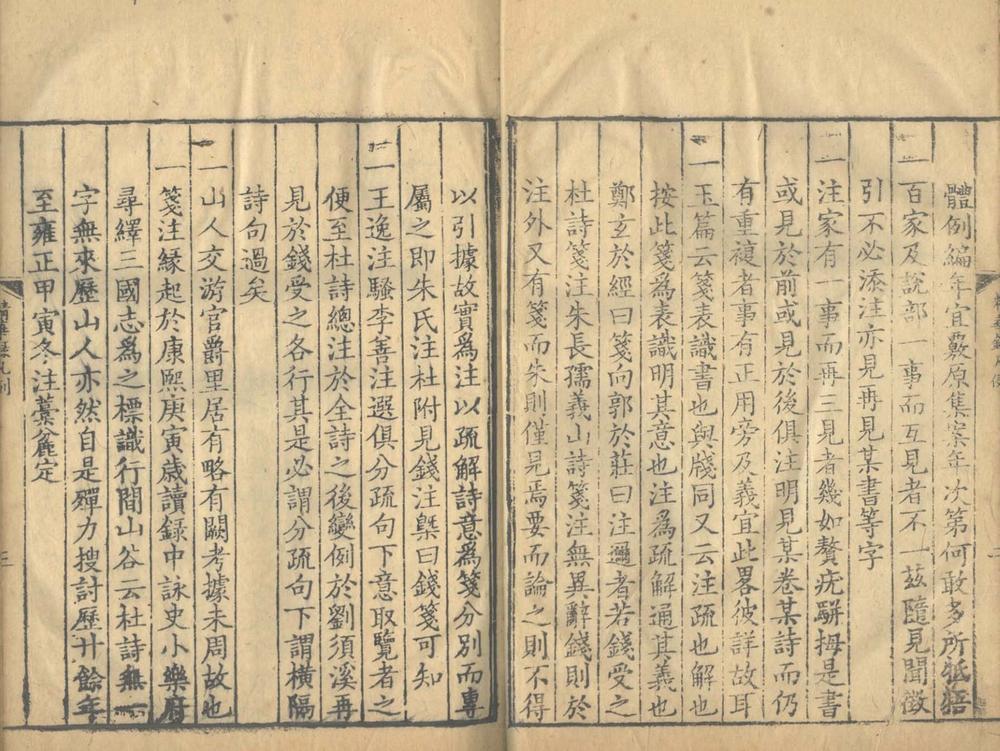 體例編年宜覈原集案年次第何敢多所牴牾
一百家及說部一事而互見者不一茲隨見聞徵
引不必添注亦見再見某書等字
一注家有一事而再三見者幾如贅疣駢拇是書
或見於前或見於後俱注明見某卷某詩而仍
有重複者事有正用旁及義宜此畧彼詳故耳
一玉篇云箋表識書也與牋同又云注疏也解也
按此箋為表識明其意也注為疏解通其義也
鄭玄於經曰箋向郭於莊曰注邇者若錢受之
杜詩箋注朱長孺義山詩箋注無異辭錢則於
注外又有箋而朱則僅見焉要而論之則不得
以引據故實為注以疏解詩意為箋分別而專
屬之即朱氏注杜附見錢注槩曰錢箋可知
一王逸注騷李善注選俱分疏句下意取覽者之
便至杜詩總注於全詩之後變例於劉須溪再
見於錢受之各行其是必謂分疏句下謂橫隔
詩句過矣
一山人交游官爵里居有略有闕考據未周故也
一箋注緣起於康熙庚寅歲讀録中詠史小樂府
尋繹三國志為之標識行間山谷云杜詩無一
字無來歷山人亦然自是殫力搜討歷廿餘年
至雍正甲寅冬注藁麄定
凡例
三